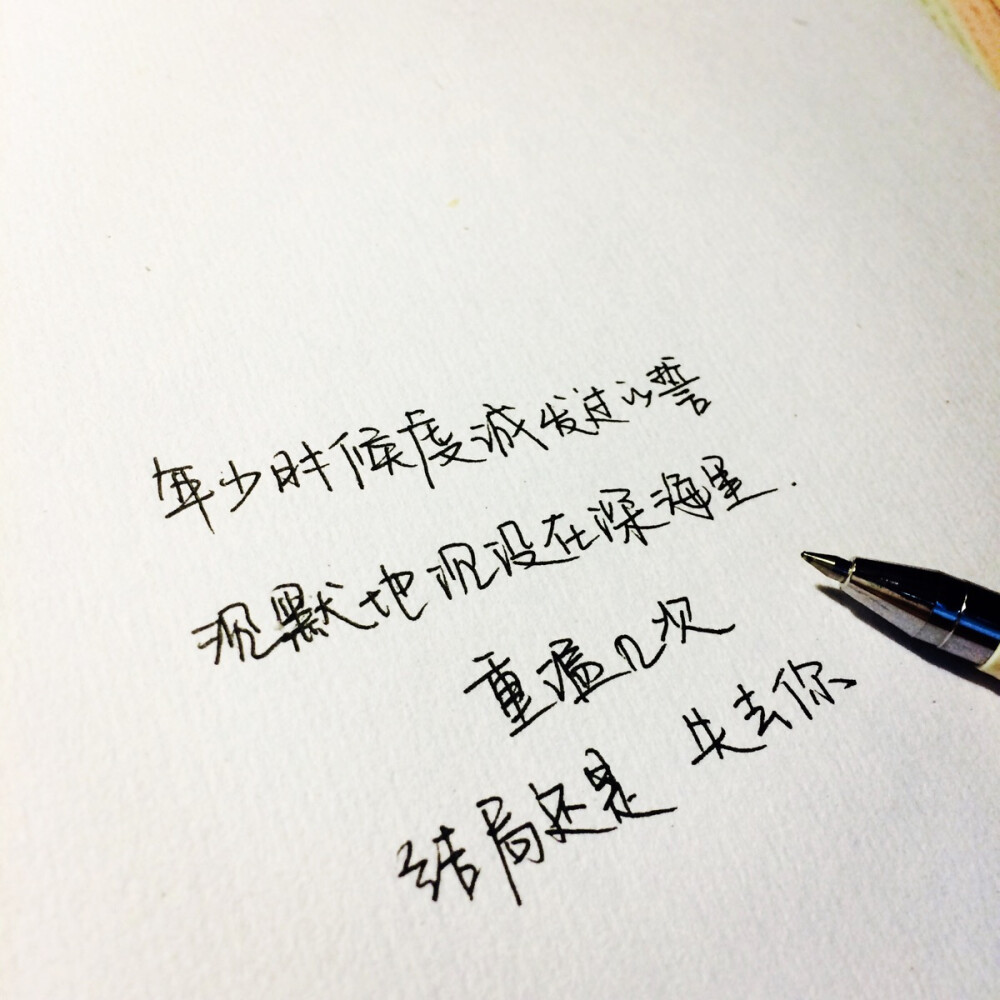 年少时候虔诚发过的誓
沉默地沉没在深海里.
重温几次
结局还是 失去你